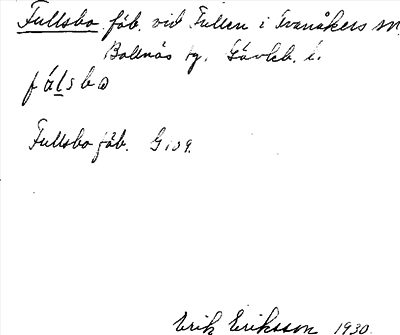 Fullsbo fäb. vid Fullen i Svanåkers sn,
Bollnäs tg. Gävleb. l.
fúlsbo
Fullsbo fäb. G 109.
Erik Eriksson 1930.